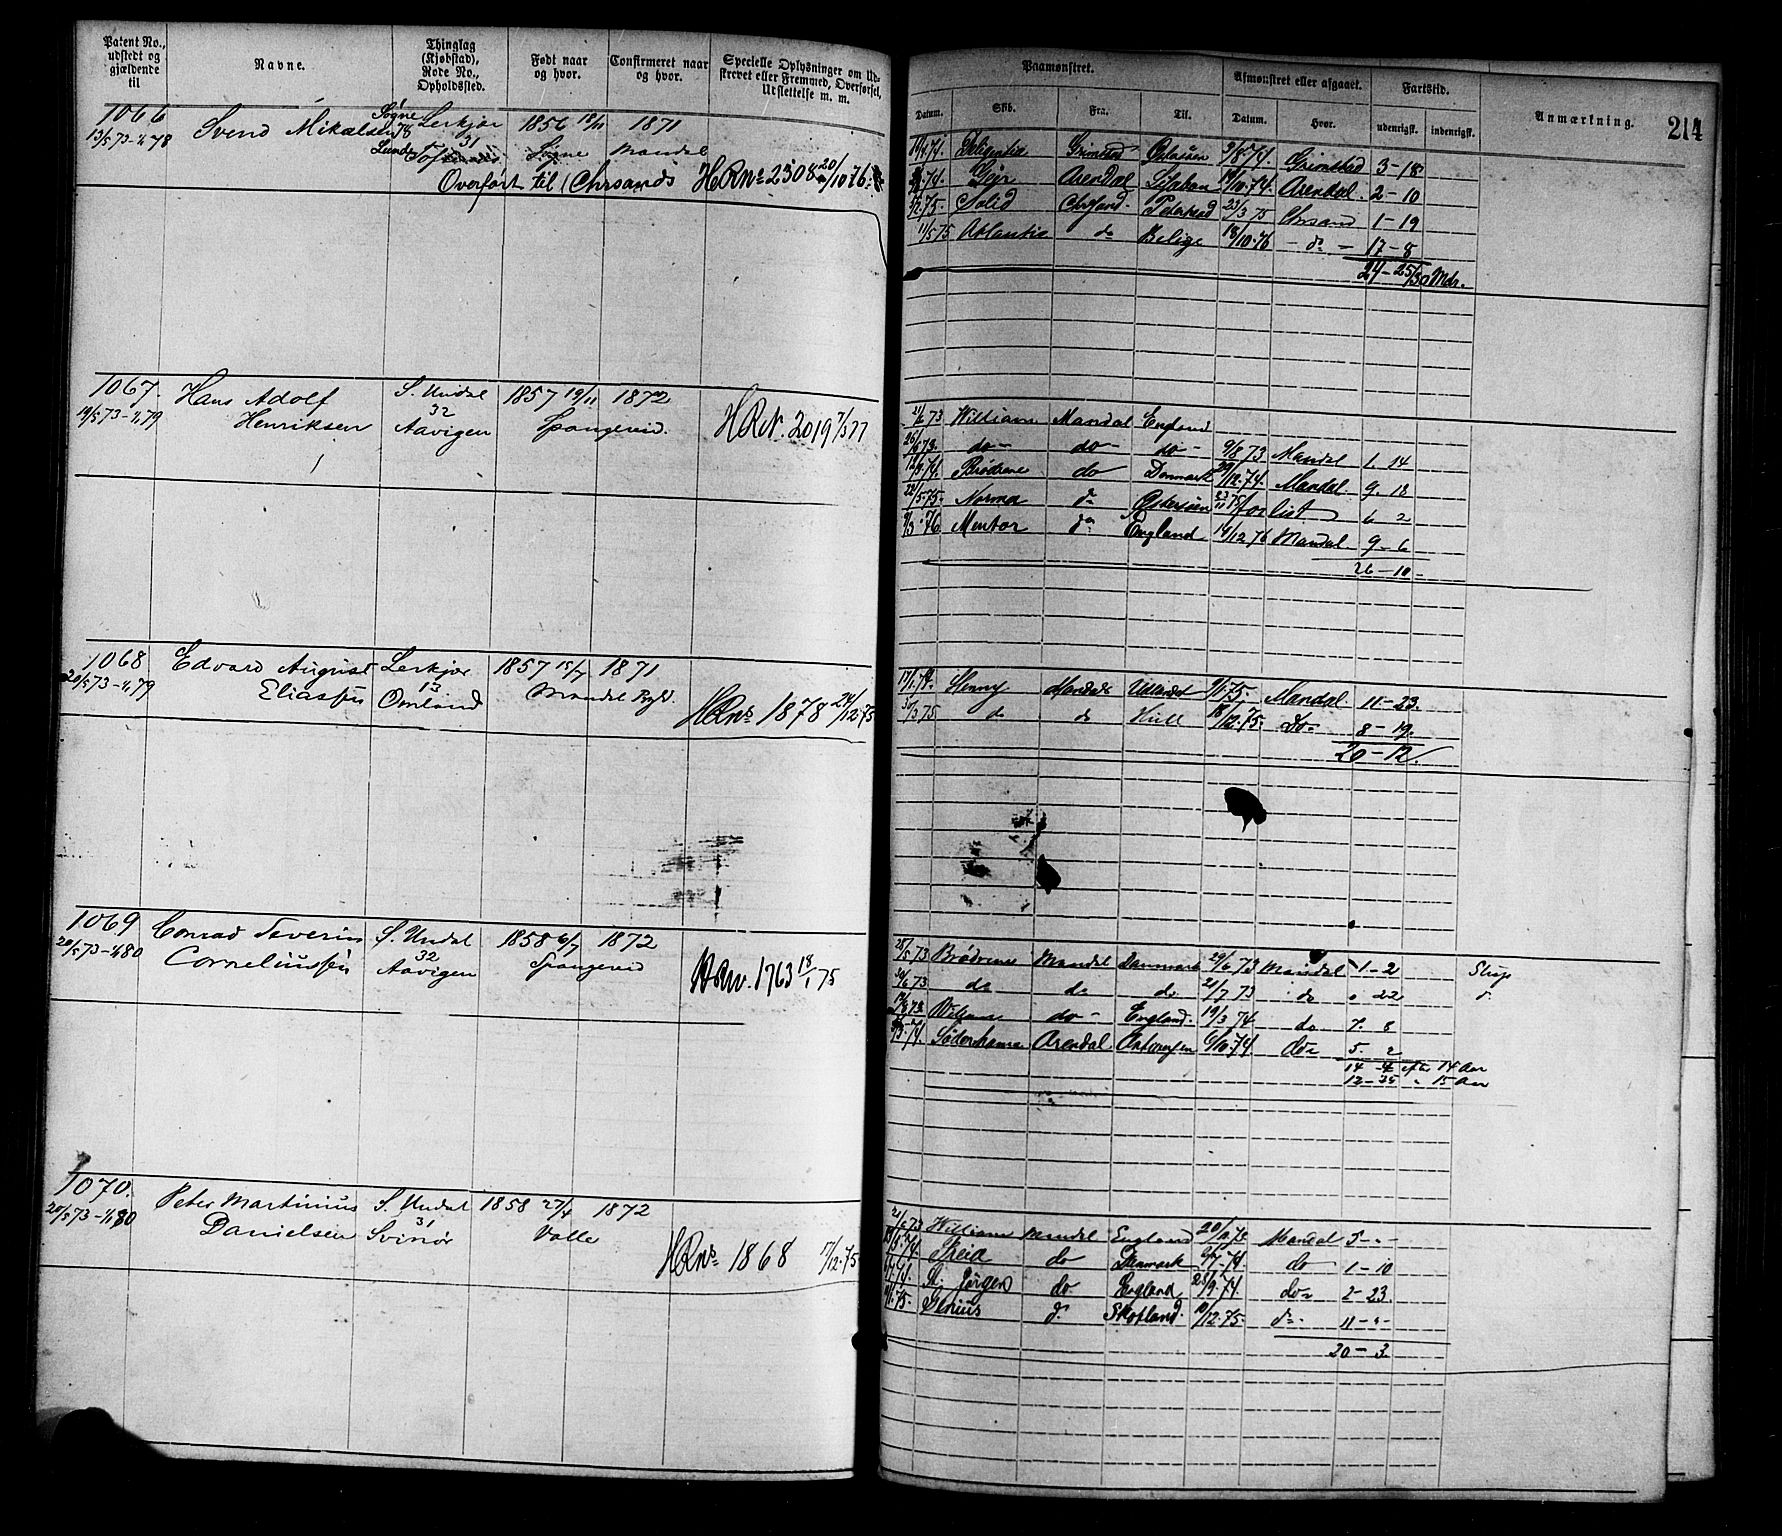 Patent No., udstedt og gjældende til
Navne.
Thinglag (Kjøbstad), Rode No., Opholdssted.
Født naar og hvor.
Confirmeret naar og hvor.
Specielle Oplysninger om Udskrevet eller Fremmed, Overførsel, Udslettelse m. m.
1066 Svend Mikalsen Søgne 78 Lunde Lerkjær 31 1856 18/11 Søgne 1871 Mandal
13/5 73 - 1/1 78
Overført til Chrsands HRNo 2308 20/10 76
1067. Hans Adolf S. Undal 1857 19/11 1872
19/5 73 - 1/1 79 Henriksen 32 Aavigen Spangereid. HRN. 2019 7/3 77
1068 Edvard August Lerkjær 1857 15/7 1871
20/5 73 - 1/1 79 Eliassen 13 Omland Mandal HRNo 1878 24/12 75
1069 Conrad Severin S. Undal 1858 6/7 1872
20/5 73 - 1/1 80 Corneliussen 32 Aavigen Spangereid HRNo. 1763 18/1 75
1070. Peter Martinius S. Undal 1858 27/4 1872
20/5 73 - 1/1 80 Danielsen 31 Svinør Valle HRNo 1868 17/12 75
Paamønstret.
Afmønstret eller afgaaet.
Fartstid.
Anmærkning. 214
Datum. Skib. Fra. Til. Datum. Hvor. udenrigsk. indenrigsk.
74. Grimstad 9/8 74. Grimstad 3-18
74. Gejr Arendal 10.74. Arendal. 2-10
75. Solid Chrsand. Peterhead 23/3 75 Chrsand 1-19
11/5 75 Atlantic do Belize 18/10.76 - do - 17-8
24-25/30 Mdr.
73 William Mandal England
26/ 73. do- do- do- 9/8 73 Mandal 1. 14
74. Brødrene do Danmark 29/12.74. Mandal. 9. 18
22/5 75. Norma do Østersøen 23/11 75 forlist 6 2
9/3.76. Mentor do England 14/12 76 Mandal 9-6
26-10-
17/1.74. Henny Mandal Udlandet 75. Mandal. 11-23
30/3 75. do do Hull 18/12.75. Do- 8-19.
20-12.
28/5 73 Brødrene Mandal Danmark 24/6 73 Mandal 1-2 Slup
30/6 73 do do do 21/7 73 do " 22 do
73 William do- England. 19/3 74 do 7. 8
74. Söderhamn Arendal Antwerpen 6/10.74. do- 5. 2
14-4 efter 14 Aar
12-25 " 15 Aar
21/6 73 William Mandal England 20/ 73 Mandal 5-"-
74. do Danmark 6/7.74. do 1-10
74. St. Jørgen do England 28/9.74. do- 2-23.
75. Genius do Skotland. 10/12.75. do- 11-"-
20-3